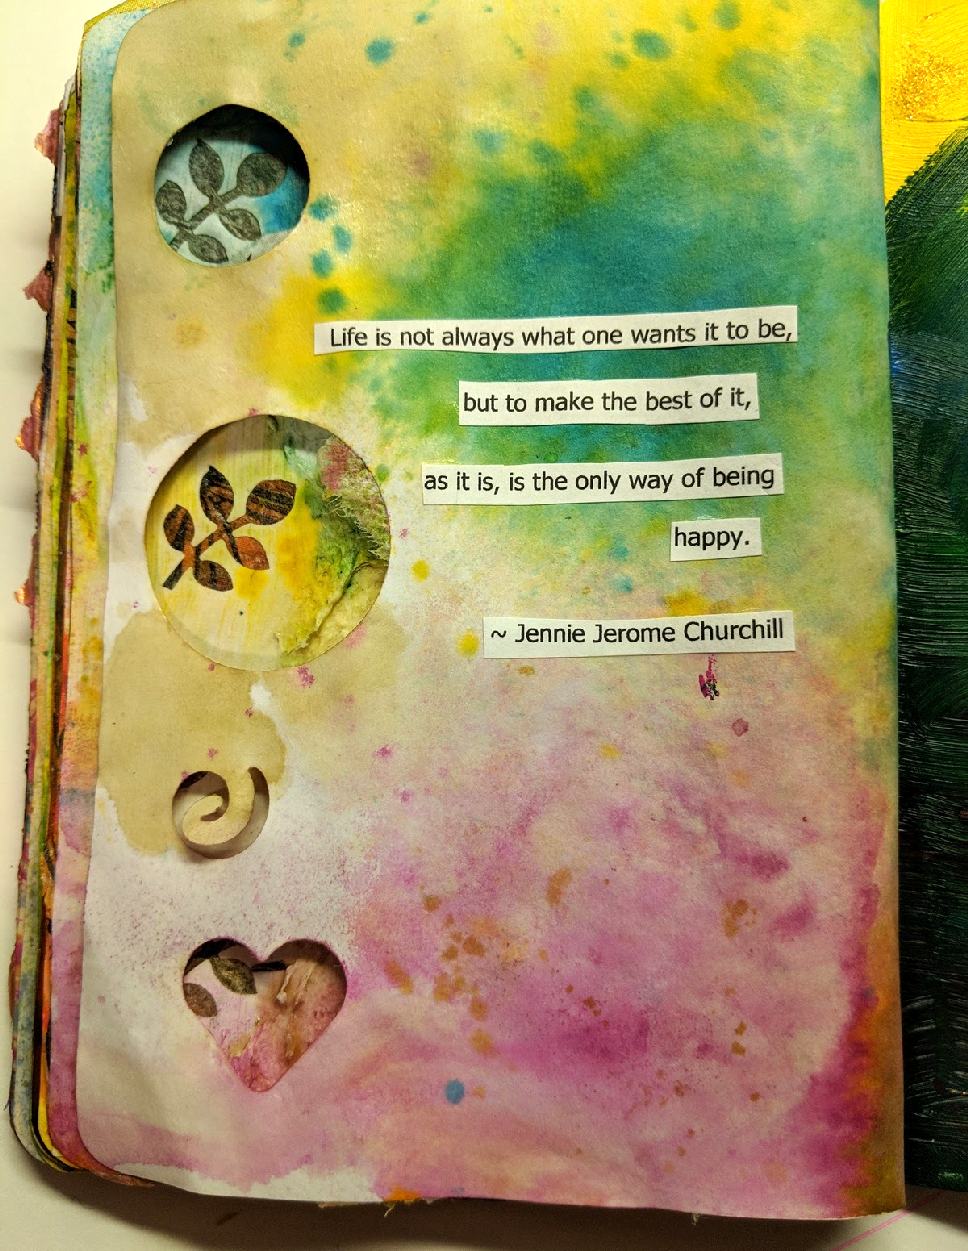 Life is not always what one wants it to be,
but to make the best of it,
as it is, is the only way of being
happy.
~ Jennie Jerome Churchill